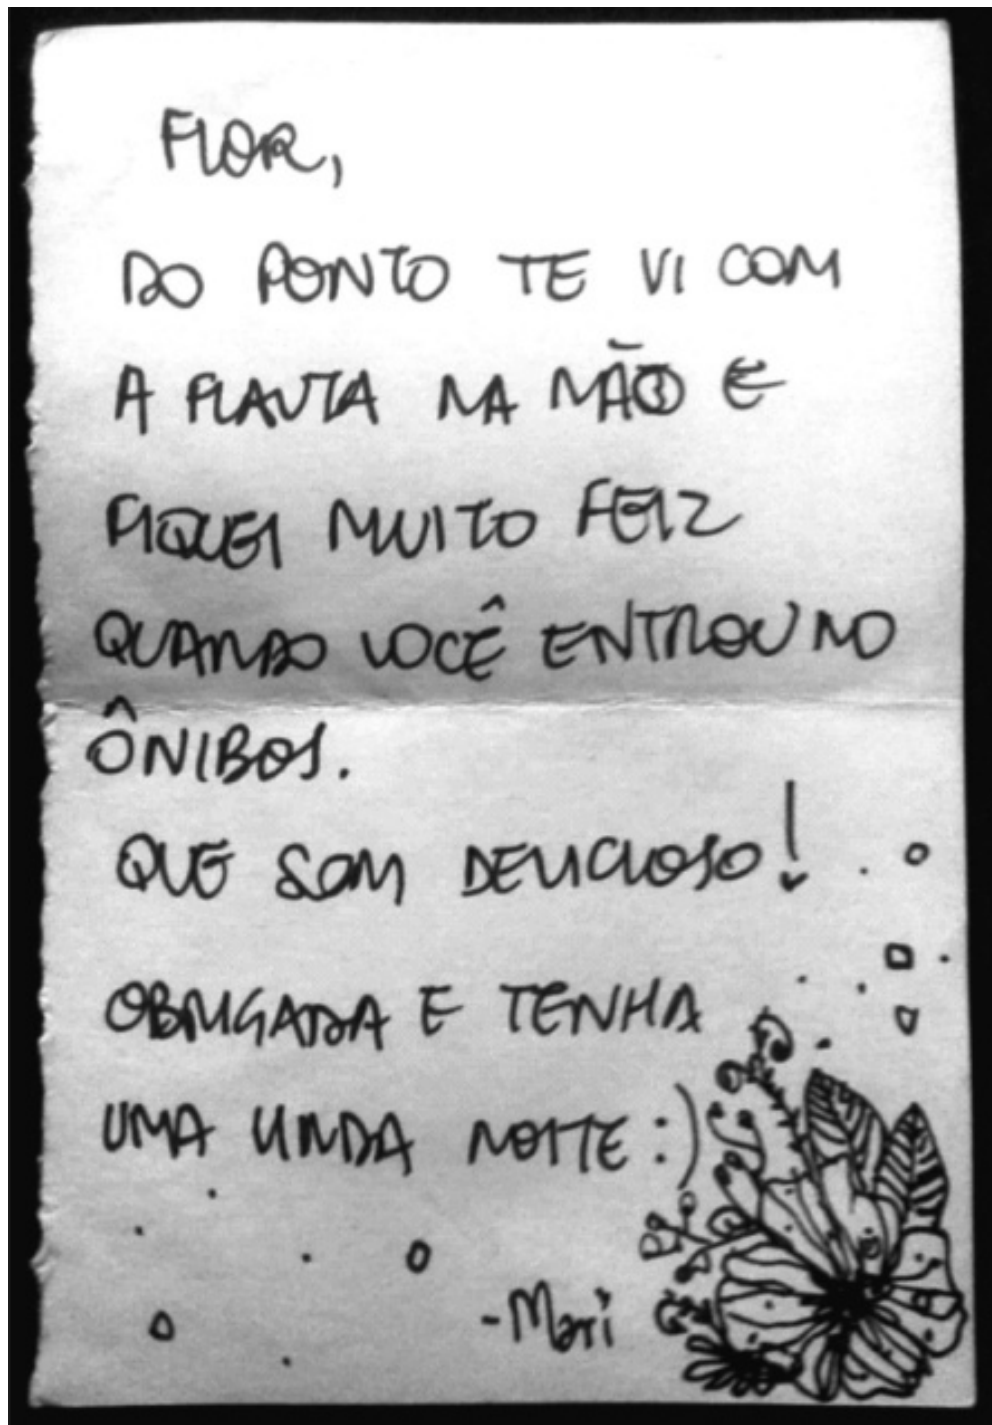 FLOR,
DO PONTO TE VI COM
A FLAUTA NA MÃO E
FIQUEI MUITO FELIZ
QUANDO VOCÊ ENTROU NO
ÔNIBUS.
QUE SOM DELICIOSO!
OBRIGADA E TENHA
UMA LINDA NOITE :)
-Mari